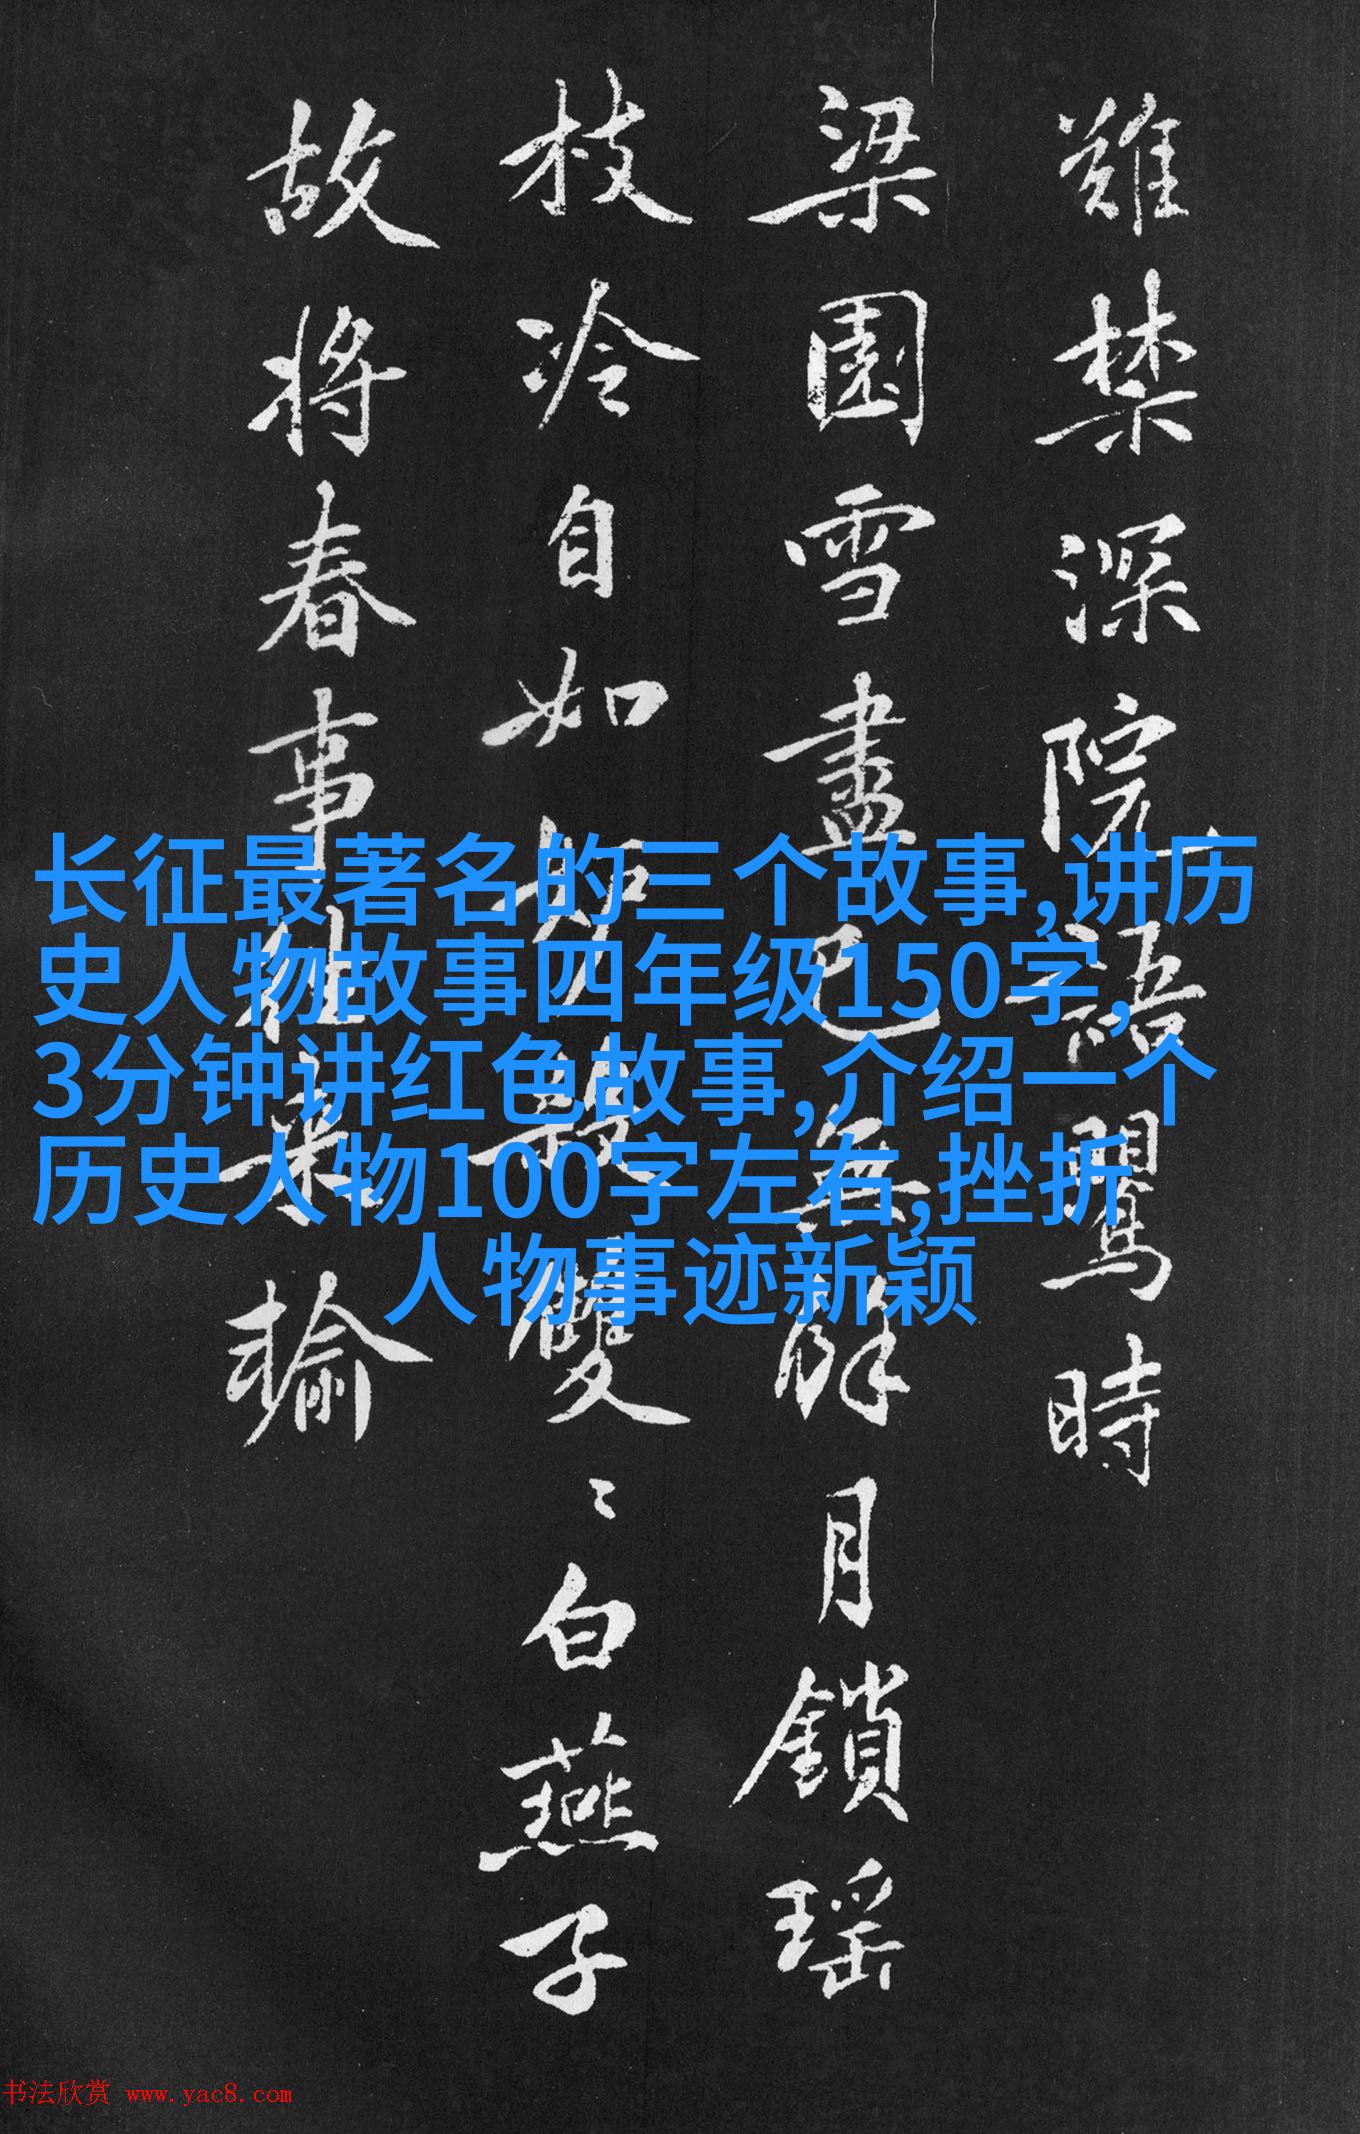 難禁深院語鶯時
梁園雪盡已無餘月鎖瑤
枝冷自如雙〻白燕子
故將春事來輸
长征最著名的三个故事,讲历
史人物故事四年级150字,
3分钟讲红色故事,介绍一个
历史人物100字左右,挫折
人物事迹新颖
书法欣赏 www.yac8.com